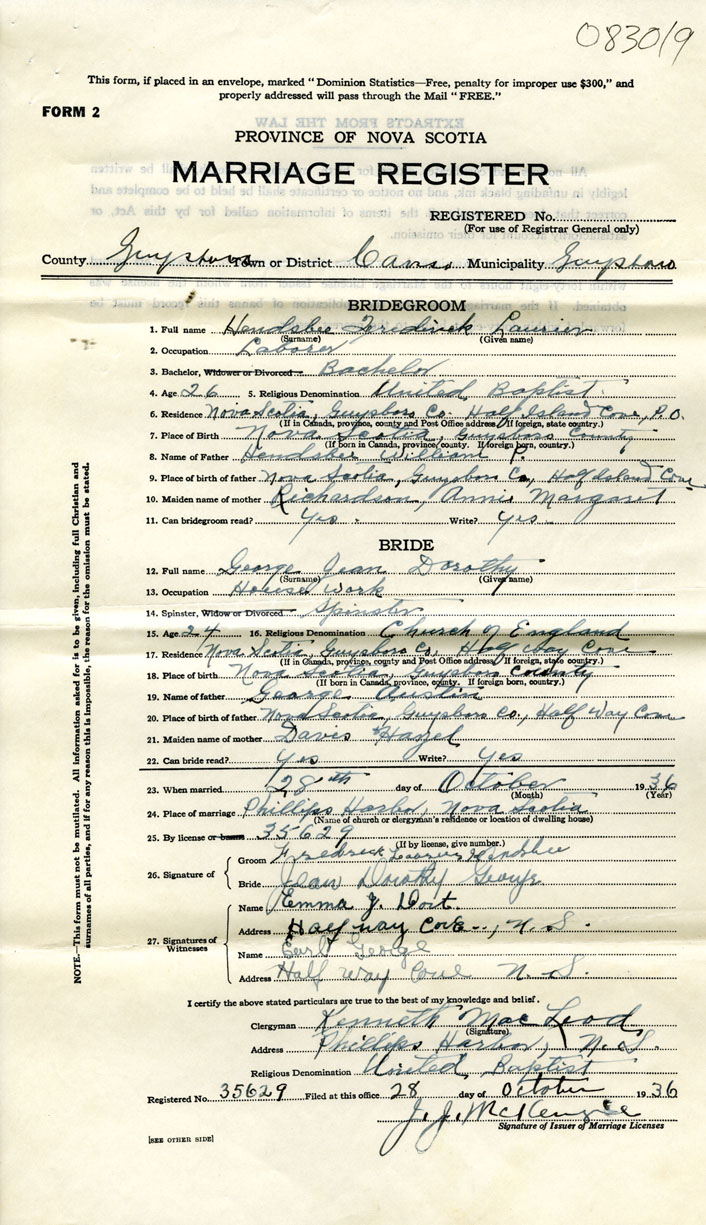 083019
This form, if placed in an envelope, marked "Dominion Statistics—Free, penalty for improper use $300," and
properly addressed will pass through the Mail "FREE."
FORM 2
EXTRACTS FROM THE LAW
PROVINCE OF NOVA SCOTIA
MARRIAGE REGISTER
REGISTERED No.
(For use of Registrar General only)
County Guysboro Town or District Canso Municipality Guysboro
BRIDEGROOM
1. Full name Hendsbee Fredrick Laurier
(Surname) (Given name)
2. Occupation Laborer
3. Bachelor, Widower or Divorced Bachelor
4. Age 26 5. Religious Denomination United Baptist
6. Residence Nova Scotia, Guysboro Co. Half Island Cove, P.O.
(If in Canada, province, county and Post Office address. If foreign, state country.)
7. Place of Birth Nova Scotia, Guysboro County
(If born in Canada, province, county. If foreign born, country.)
8. Name of Father Hendsbee William P.
9. Place of birth of father Nova Scotia, Guysboro Co, Half Island Cove
10. Maiden name of mother Richardson, Annie Margaret
11. Can bridegroom read? Yes. Write? Yes
BRIDE
12. Full name George Jean Dorothy
(Surname) (Given name)
13. Occupation House Work
14. Spinster, Widow or Divorced Spinster
15. Age 24 16. Religious Denomination Church of England
17. Residence Nova Scotia, Guysboro Co, Half Way Cove
(If in Canada, province, county and Post Office address. If foreign, state country.)
18. Place of birth Nova Scotia, Guysboro County
(If born in Canada, province, county. If foreign born, country.)
19. Name of father George Austin
20. Place of birth of father Nova Scotia, Guysboro Co., Half Way Cove
21. Maiden name of mother Davis Hazel
22. Can bride read? Yes Write? Yes
23. When married 28th day of October 1936
(Month) (Year)
24. Place of marriage Phillips Harbor, Nova Scotia
(Name of church or clergyman's residence or location of dwelling house)
25. By license or banns 35629
(If by license, give number.)
26. Signature of
Groom Fredrick Laurier Hendsbee
Bride Jean Dorothy George
27. Signatures of Witnesses
Name Emma J. Dort.
Address Half way Cove, N. S.
Name Earl George
Address Half Way Cove N. S.
I certify the above stated particulars are true to the best of my knowledge and belief.
Clergyman Kenneth MacLeod
(Signature)
Address Phillips Harbor, N. S.
Religious Denomination United Baptist
Registered No. 35629 Filed at this office 28 day of October 1936
J. J. McKenzie
Signature of Issuer of Marriage Licenses
[SEE OTHER SIDE]
NOTE.—This form must not be mutilated. All information asked for is to be given, including full Christian and
surnames of all parties, and if for any reason this is impossible, the reason for the omission must be stated.